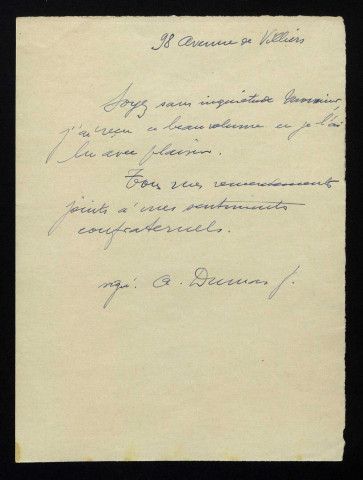 98 avenue de Villiers
Soyez sans inquiétude Monsieur,
j'ai reçu ce beau volume et je l'ai
lu avec plaisir.
Tous mes remerciements
joints à mes sentiments
confraternels.
signé : A. Dumas f.